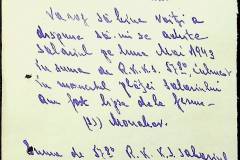 Va rog să bine voiți a
dispune să-mi se achite
salariul pe luna Mai 1943
în suma de R.K.K.S. 572,
în momentul plății salariului
am fost lipsă dela
(ss) Monahov.
Suma de 572 R.K.K.S. salariul